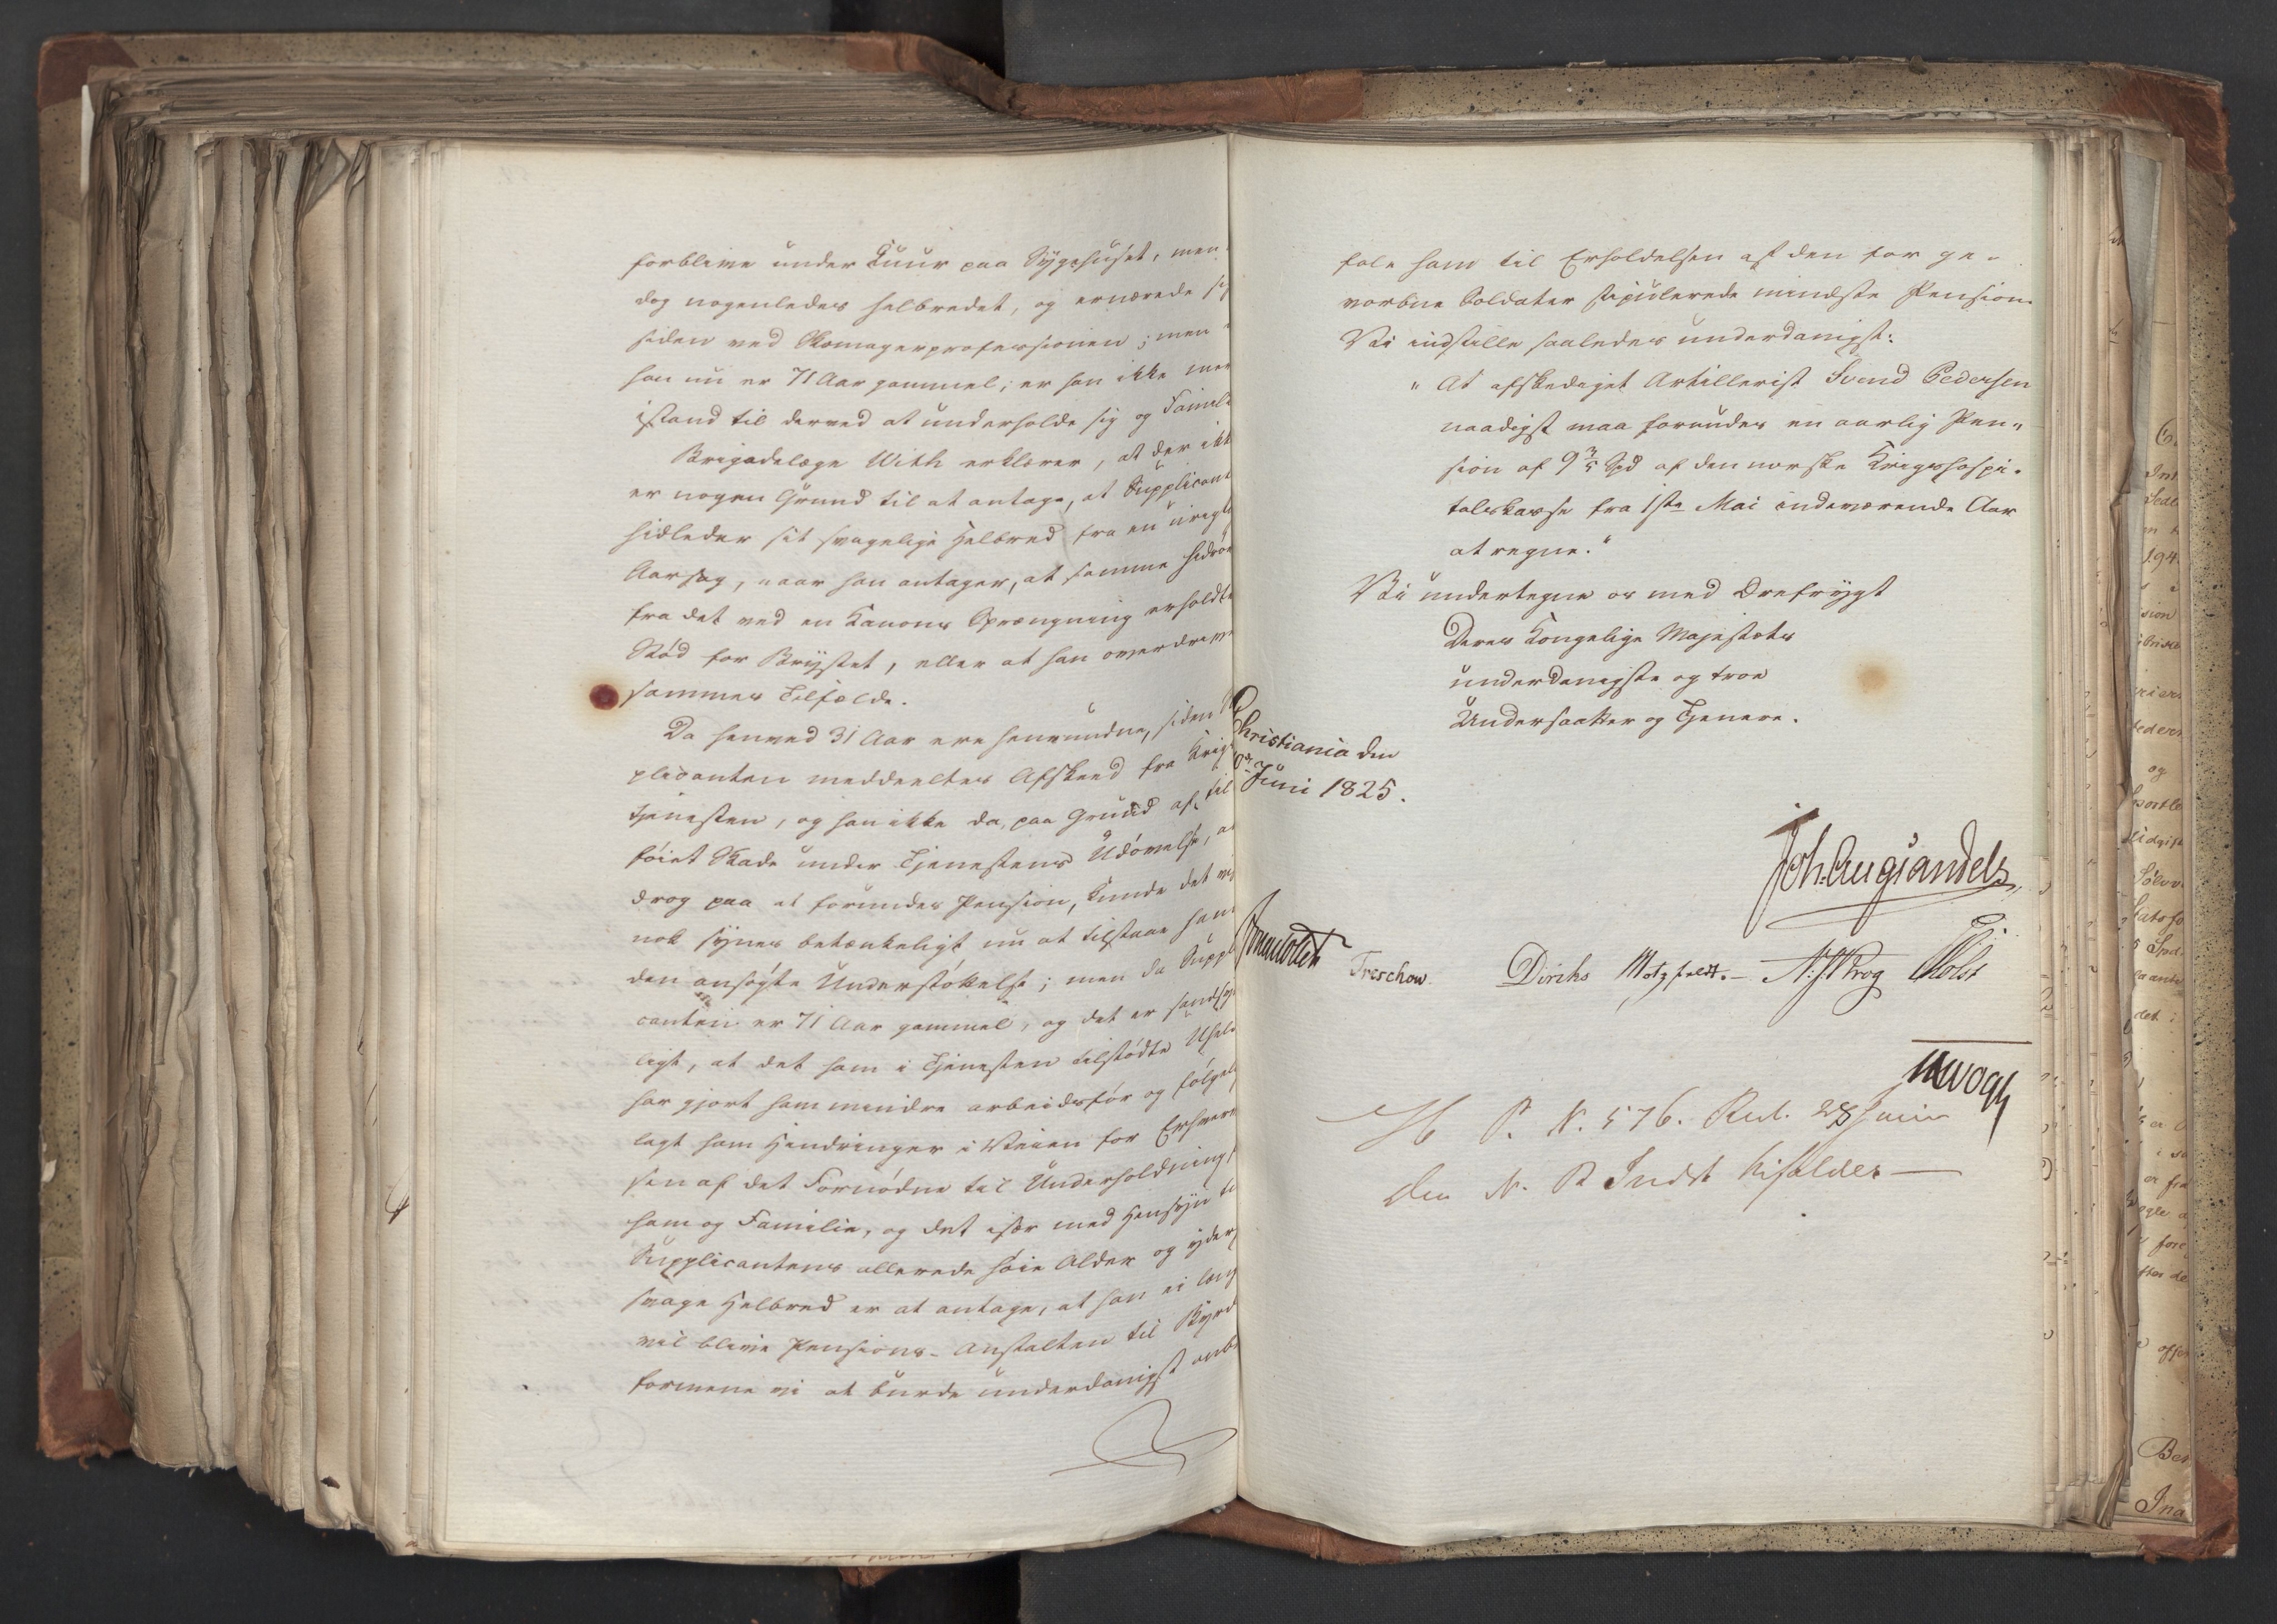 forblive under Cuur paa Sygehuset, men
dog nogenledes helbredet, og ernærede sig
siden ved Skomagerprofessionen; men
han nu er 71 Aar gammel, er han ikke mere
istand til derved at underholde sig og Famil
Brigadelæge With erklærer, at der ikk
er nogen Grund til at antage, at Supplicant
hidleder sit svagelige Helbred fra en urigt
Aarsag, naar han antager, at samme hidrør
fra det ved en Kanons Sprængning erholdte
Stød for Brystet, eller at han overdrev
sammes Tilfælde.
Da henved 31 Aar ere henrundne, siden Su
plicanten meddeeltes Afskeed fra Krigs
tjenesten, og han ikke da, paa Grund af til
føiet Skade under Tjenestens Udøvelse, an
drog paa at forundes Pension, kunde det vis
nok synes betænkeligt nu at tilstaae ham
den ansøgte Understøttelse; men da Suppl
canten er 71 Aar gammel, og det er sandsy
ligt, at det ham i Tjenesten tilstødte Uheld
har gjort ham mindre arbeidsfør og følgel
lagt ham Hindringer i Veien for Erhverv
sen af det Fornødne til Underholdning f
ham og Familie, og det især med Hensyn til
Supplicantens allerede høie Alder og yders
svage Helbred er at antage, at han ei læng
vil blive Pensions-Anstalten til Byrde
formene vi at burde underdanigst anbe
fale ham til Erholdelsen af den for ge-
vorbne Soldater stipulerede mindste Pension.
Vi indstille saaledes underdanigst:
"At afskediget Artillerist Svend Pedersen
naadigst maa forundes en aarlig Pen-
sion af 9 3/5 Spd af den norske Krigshospi-
talskasse fra 1ste Mai indeværende Aar
at regne."
Vi undertegne os med Ærefrygt
Deres Kongelige Majestæts
underdanigste og troe
Undersaatter og Tjenere.
Christiania den
Juni 1825.
Joh. Aug. Sandels
Treschow. Diriks Motzfeldt.- Krog Holst
Vogt
P. N. 576. Res. 28 Juni
Den N. R Indst bifaldes